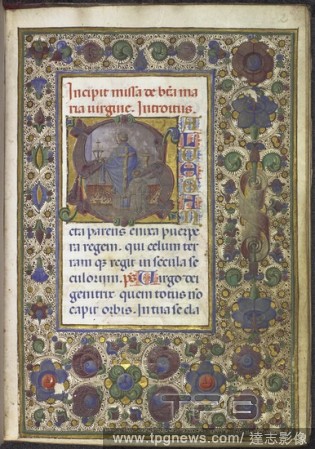 2
Incipit missa de bt̄i ma
ria uirgine. Introitus.
SALVE SAN
cta parens enixa puerpe
ra regem. qui celum ter
ram qꝫ regit in secula se
culorum. ps Uirgo dei
genitrix quem totus nō
capit orbis. In tua se cla
TPG
www.tpgnews.com/ 達志影像